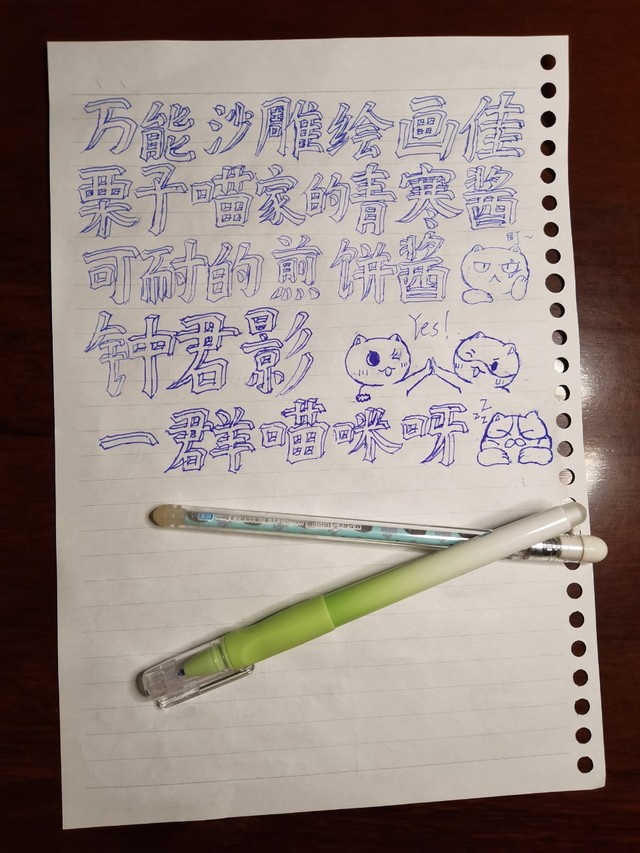 万能沙雕绘画佳
栗子喵家的青寒酱
可耐的煎饼酱
钟君影
Yes!
一群喵咪呀
zzz